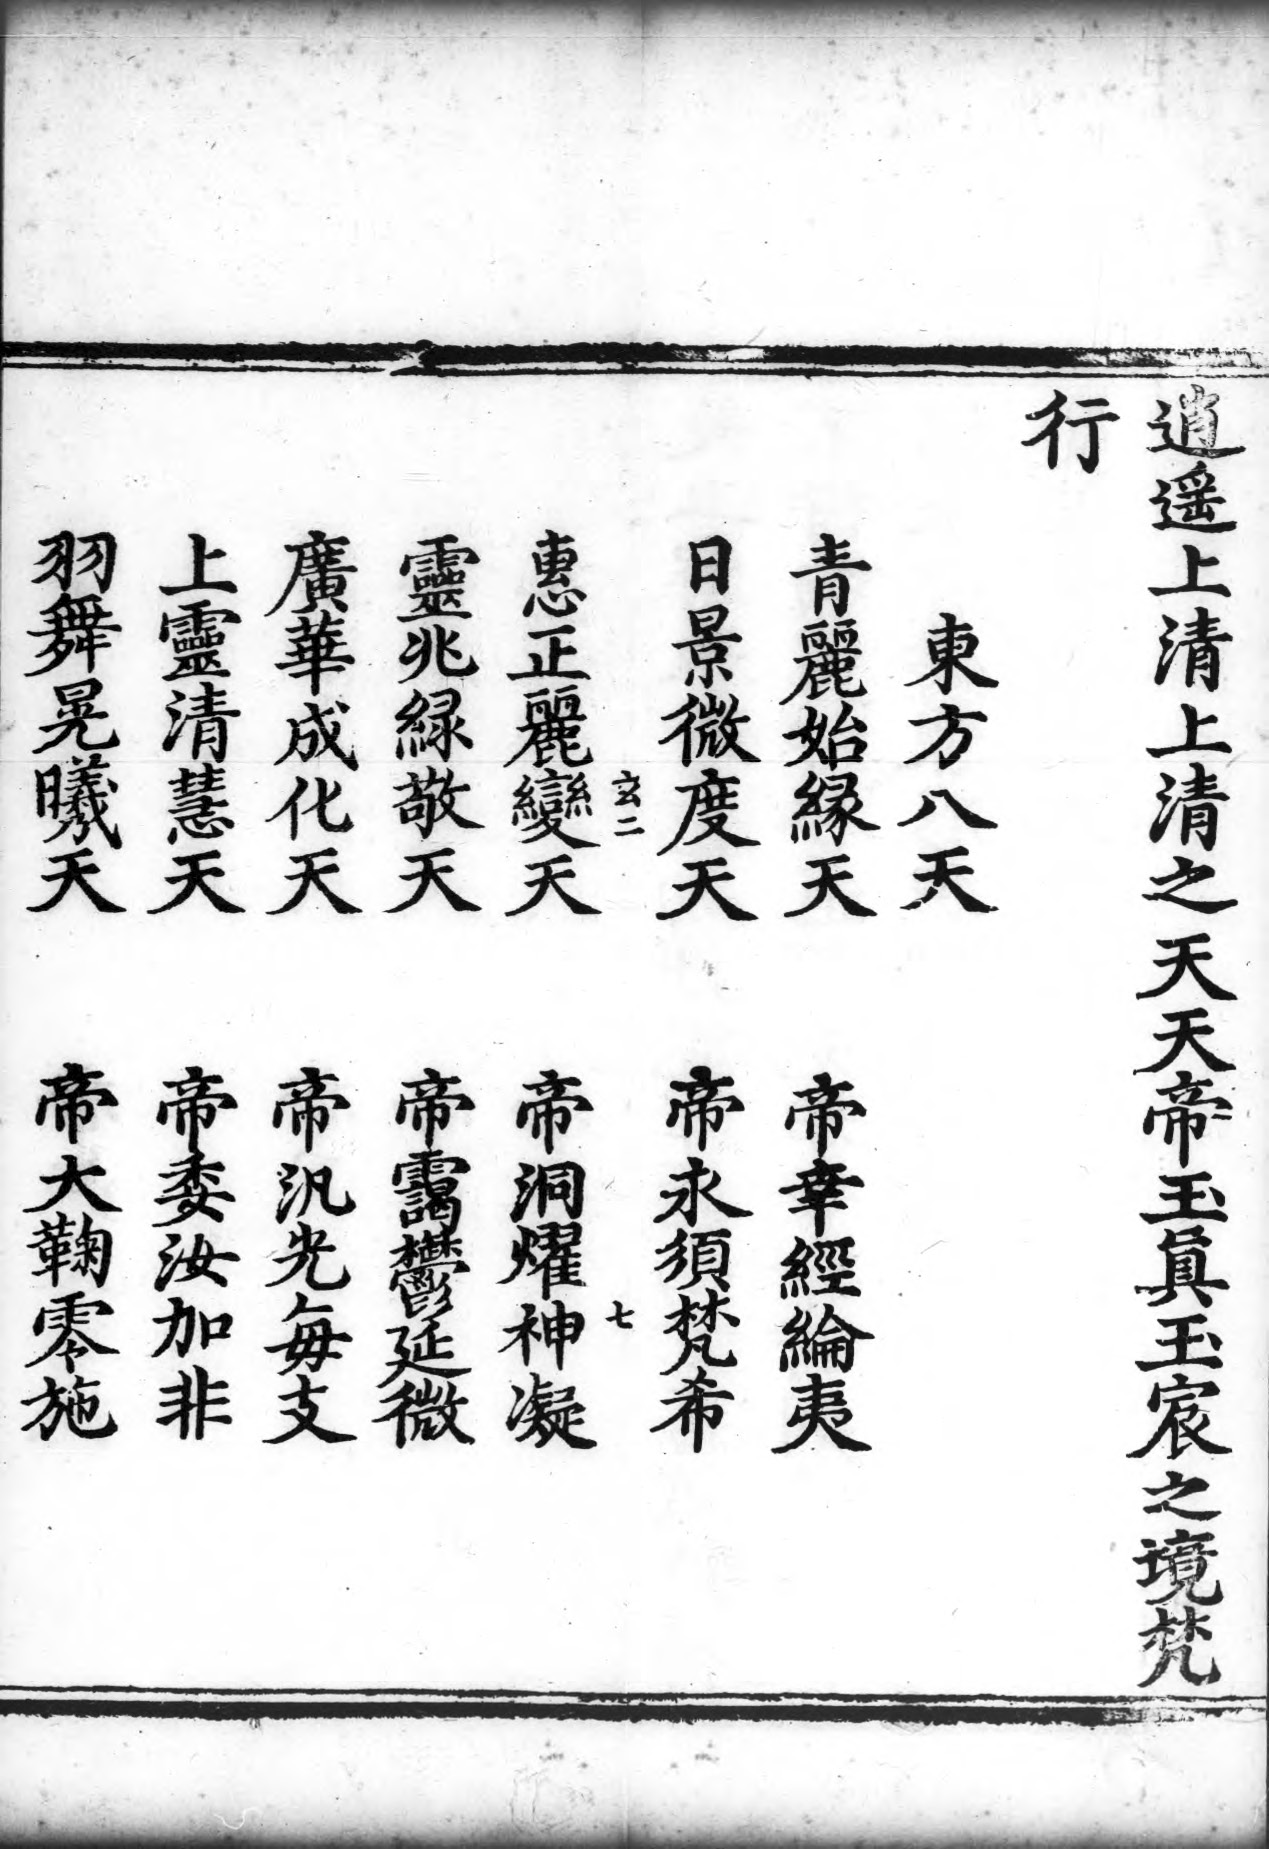 逍遥上清上清之天天帝玉眞玉宸之境梵
行
東方八天
青麗始縁天 帝幸經綸夷
日景微度天 帝永須梵希
玄二 七
惠正麗變天 帝洞燿神凝
靈兆緑敬天 帝靄鬱延微
廣華成化天 帝汎光毎支
上靈清慧天 帝委汝加非
羽舞晃曦天 帝大鞠零施